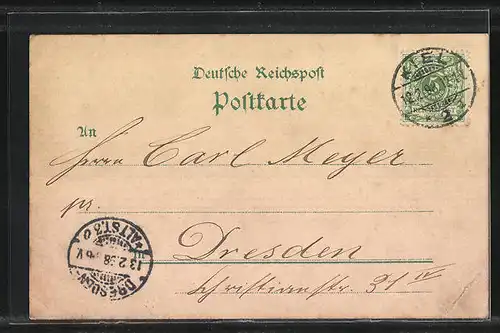 KIEL
12.2.
* 2
Deutsche Reichspost
Postkarte
An
Herrn Carl Meyer
pr.
Dresden
Christianstr. 31 IV
DRESDEN-ALTST.
13.2.98
V